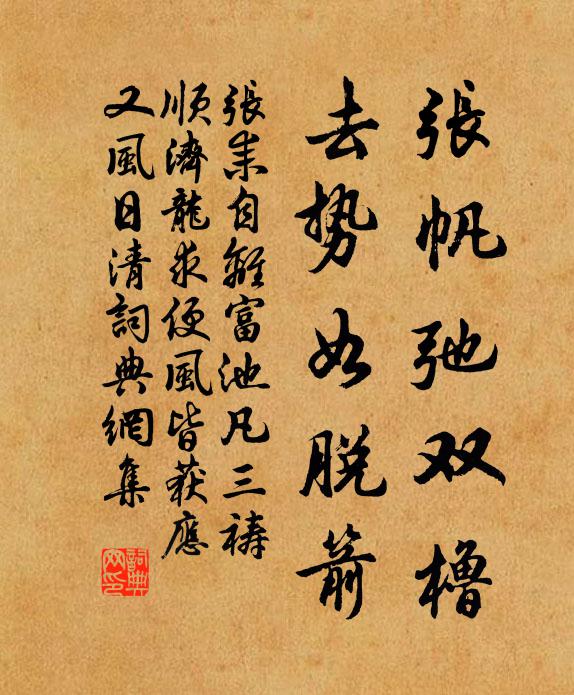 張帆弛双櫓
去势如脱箭
張耒自離富池凡三祷
順濟龍求便風皆获應
又風日清詞典網集
詞典网印